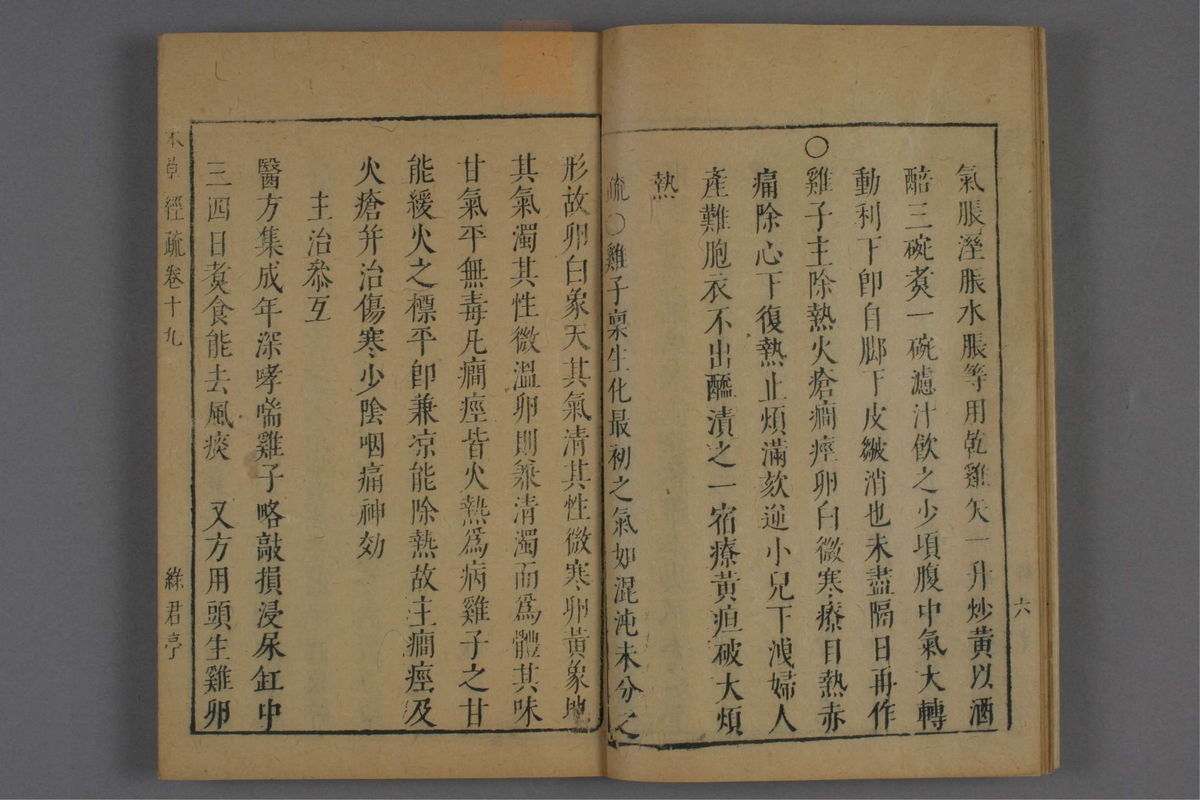 氣脹溼脹水脹等用乾雞矢一升炒黃以酒
醅三碗煮一碗濾汁飲之少頃腹中氣大轉
動利下卽自脚下皮皺消也未盡隔日再作
○雞子主除熱火瘡癎痓卵白微寒療目熱赤
痛除心下復熱止煩滿欬逆小兒下洩婦人
產難胞衣不出醯漬之一宿療黃疸破大煩
熱
疏○雞子稟生化最初之氣如混沌未分之
六
形故卵白象天其氣清其性微寒卵黃象地
其氣濁其性微溫卵則兼清濁而爲體其味
甘氣平無毒凡癎痓皆火熱爲病雞子之甘
能緩火之標平卽兼凉能除熱故主癎痓及
火瘡幷治傷寒少陰咽痛神効
主治叅互
醫方集成年深哮喘雞子略敲損浸尿缸中
三四日煮食能去風痰 又方用頭生雞卵
本草經疏卷十九 綠君亭